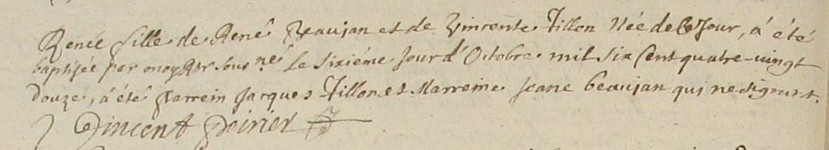 Renée fille de René Beaujan et de Vincente Tillon Née de ce Jour, à été
baptisée par moy Rtr sous né Le sixiéme Jour d'Octobre mil six Cent quatre-vingt
douze, à été Parrein Jacques Tillon et Marreine Jeane Beaujan qui ne signent.
Vincent Poirier